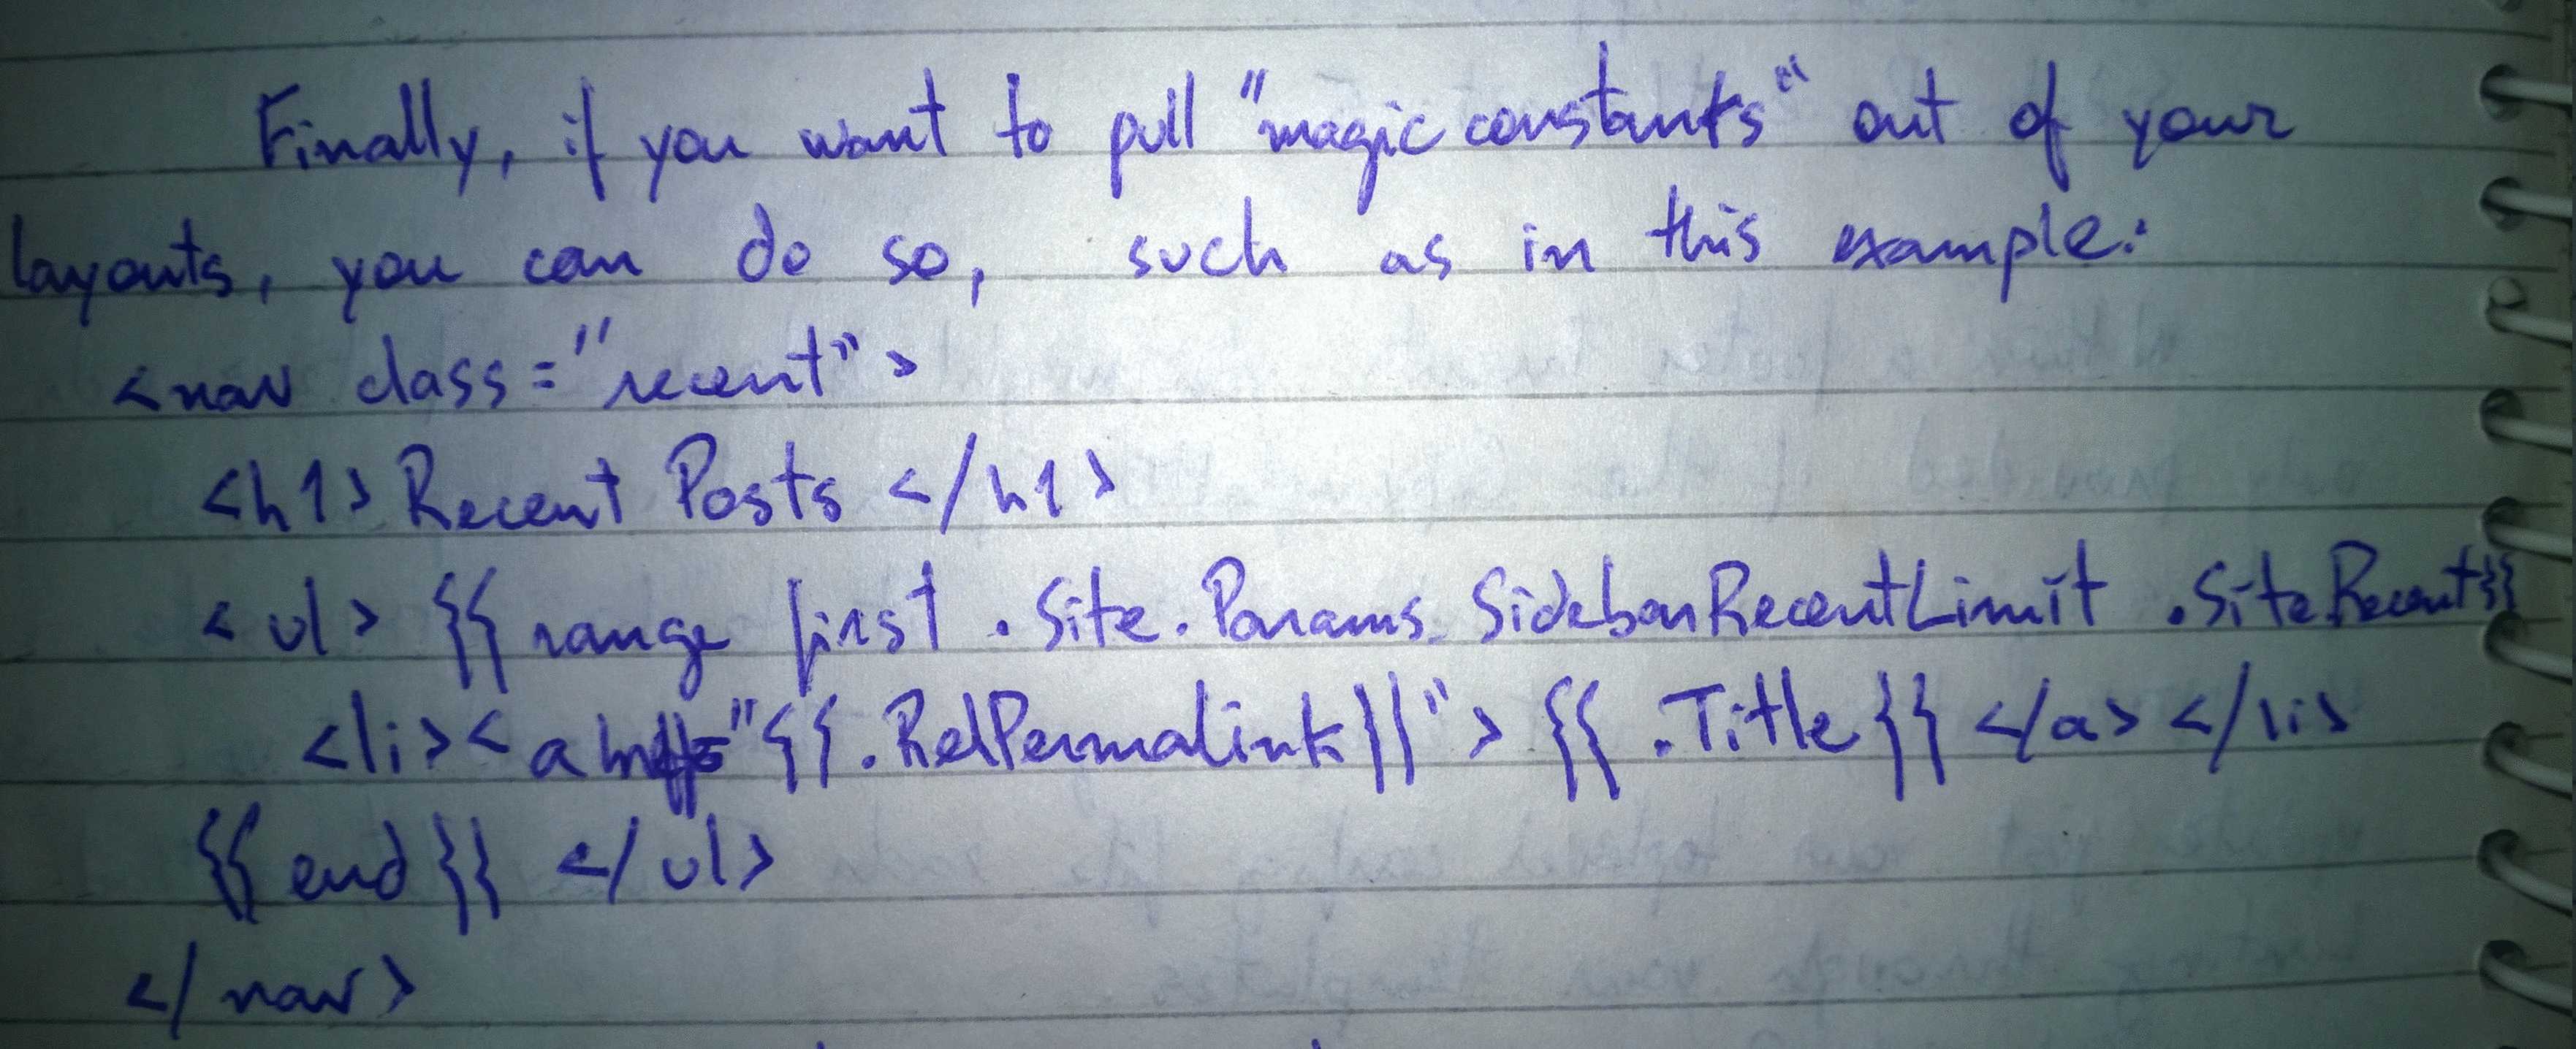 Finally, if you want to pull "magic constants" out of your
layouts, you can do so, such as in this example:
<nav class="recent">
<h1> Recent Posts </h1>
<ul> {{ range first .Site.Params.SidebarRecentLimit .Site.Recent}}
<li><a href="{{.RelPermalink}}"> {{ .Title }} </a> </li>
{{ end }} </ul>
</nav>